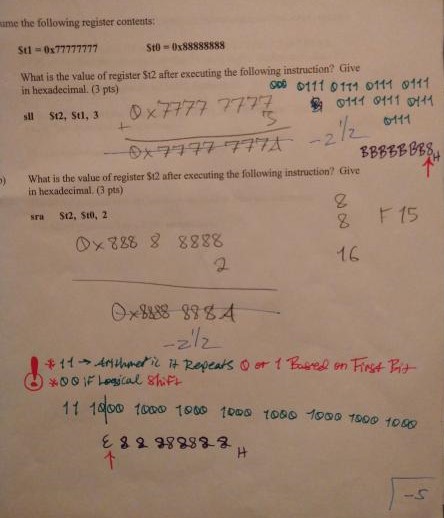 ume the following register contents:
$t1 = 0x77777777 $t0 = 0x88888888
What is the value of register $t2 after executing the following instruction? Give
in hexadecimal. (3 pts)
0111 0111 0111 0111
0111 0111 0111
0111
sll $t2, $t1, 3
0x7777 7777
+ 3
0x7777 777A
-2 1/2
BBBBBBB8H
What is the value of register $t2 after executing the following instruction? Give
in hexadecimal. (3 pts)
sra $t2, $t0, 2
8
8 F 15
16
0x888 8 8888
2
0x8888 888A
-2 1/2
! * 11 → Arithmetic it Repeats 0 or 1 Based on First Bit
* 00 if Logical Shift
11 1000 1000 1000 1000 1000 1000 1000 1000
E 8 8 8 8 8 8 8 H
-5